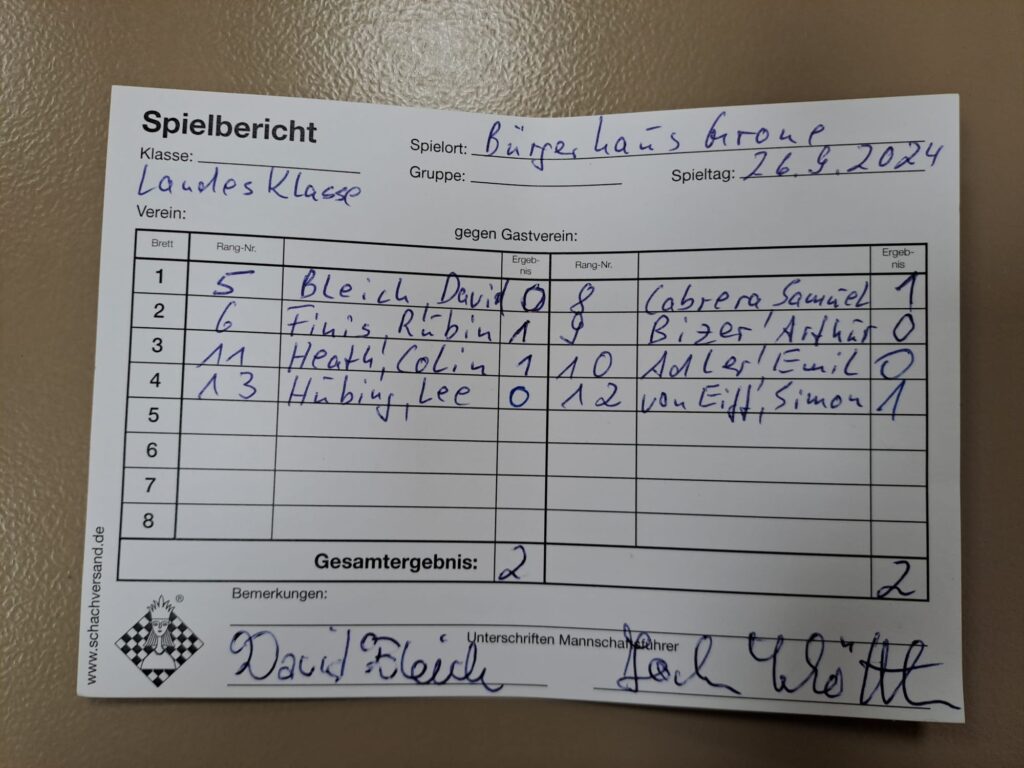 Spielbericht
Spielort: Bürgerhaus Grone
Klasse: Landesklasse
Gruppe:
Spieltag: 26.9.2024
Verein:
gegen Gastverein:
Brett Rang-Nr. Ergeb-nis Rang-Nr. Ergeb-nis
1 5 Bleich, David 0 8 Cabrera, Samuel 1
2 6 Finis, Rubin 1 9 Bizer, Arthur 0
3 11 Heath, Colin 1 10 Adler, Emil 0
4 13 Hübing, Lee 0 12 von Eiff, Simon 1
5
6
7
8
Gesamtergebnis: 2 2
Bemerkungen:
Unterschriften Mannschaftsführer
David Bleich
www.schachversand.de
®